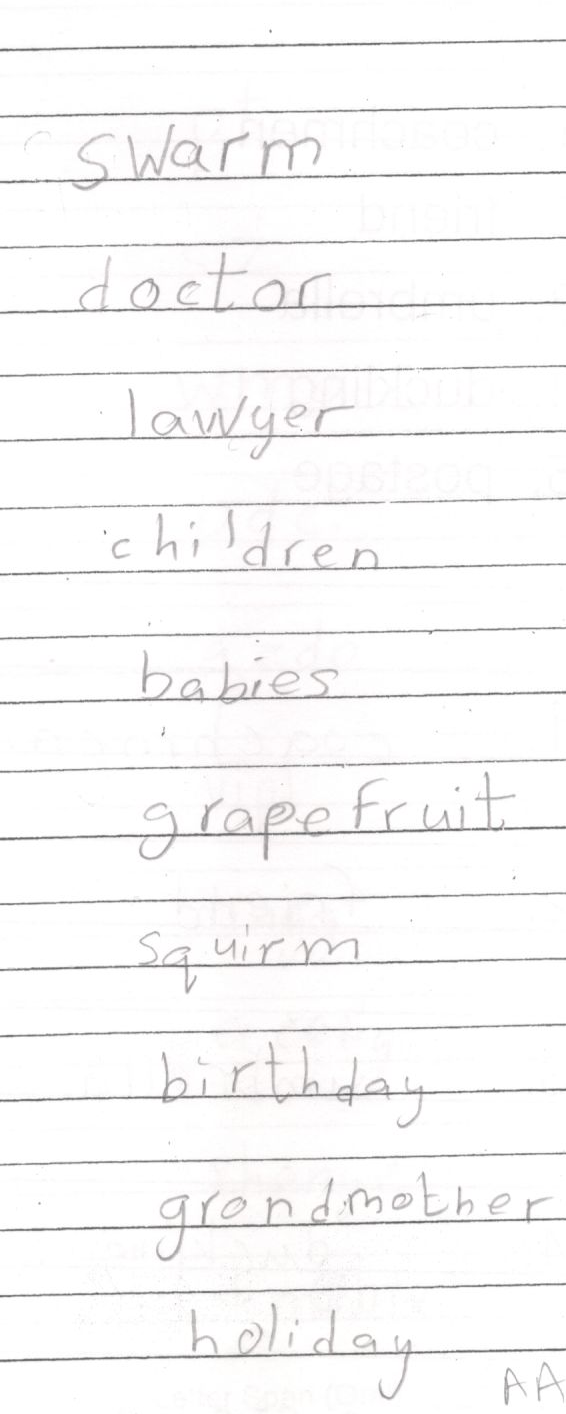 swarm
doctor
lawyer
children
babies
grapefruit
squirm
birthday
grondmother
holiday
AA